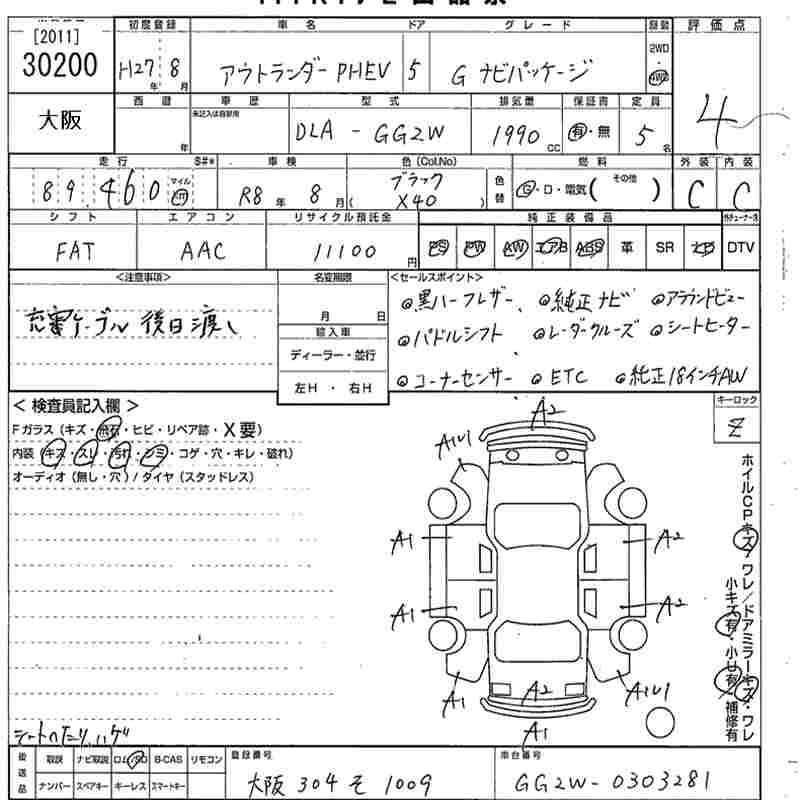 [2011]
30200
大阪
初度登録 車名 ドア グレード 駆動 評価点
H27年 8月 アウトランダーPHEV 5 G ナビパッケージ 2WD・4WD 4
西暦 車歴 型式 排気量 保証書 定員
年 未記入は自家用 DLA - GG2W 1990cc 有・無 5名
走行 S#* 車検 色(Col.No) 燃料 外装 内装
89,460 マイル km R8年 8月 ブラック ( X40 ) 色替 G・D・電気( その他 ) C C
シフト エアコン リサイクル預託金 純正装備品
FAT AAC 11100円 PS PW AW エアB ABS 革 SR ナビ DTV
<注意事項> 名変期限 <セールスポイント>
充電ケーブル 後日渡し
月 日
輸入車
ディーラー・並行
左H・右H
黒ハーフレザー、 純正ナビ アラウンドビュー
パドルシフト レーダークルーズ シートヒーター
コーナーセンサー ETC 純正18インチAW
キーロック
Z
<検査員記入欄>
Fガラス(キズ・飛石・ヒビ・リペア跡・X要)
内装(キズ・スレ・汚れ・シミ・コゲ・穴・キレ・破れ)
オーディオ(無し・穴)/タイヤ(スタッドレス)
A2
A1
A2
A1
A2
A1
A2
A1
ホイルCPキズ・ワレ/ドアミラーキズ・ワレ
小キズ有・小凹有・補修有
シートヘたり,ハゲ
後送品 取説 ナビ取説 ロム/SD B-CAS リモコン
ナンバー スペアキー キーレス スマートキー
登録番号
大阪 304 そ 1009
車台番号
GG2W-0303281